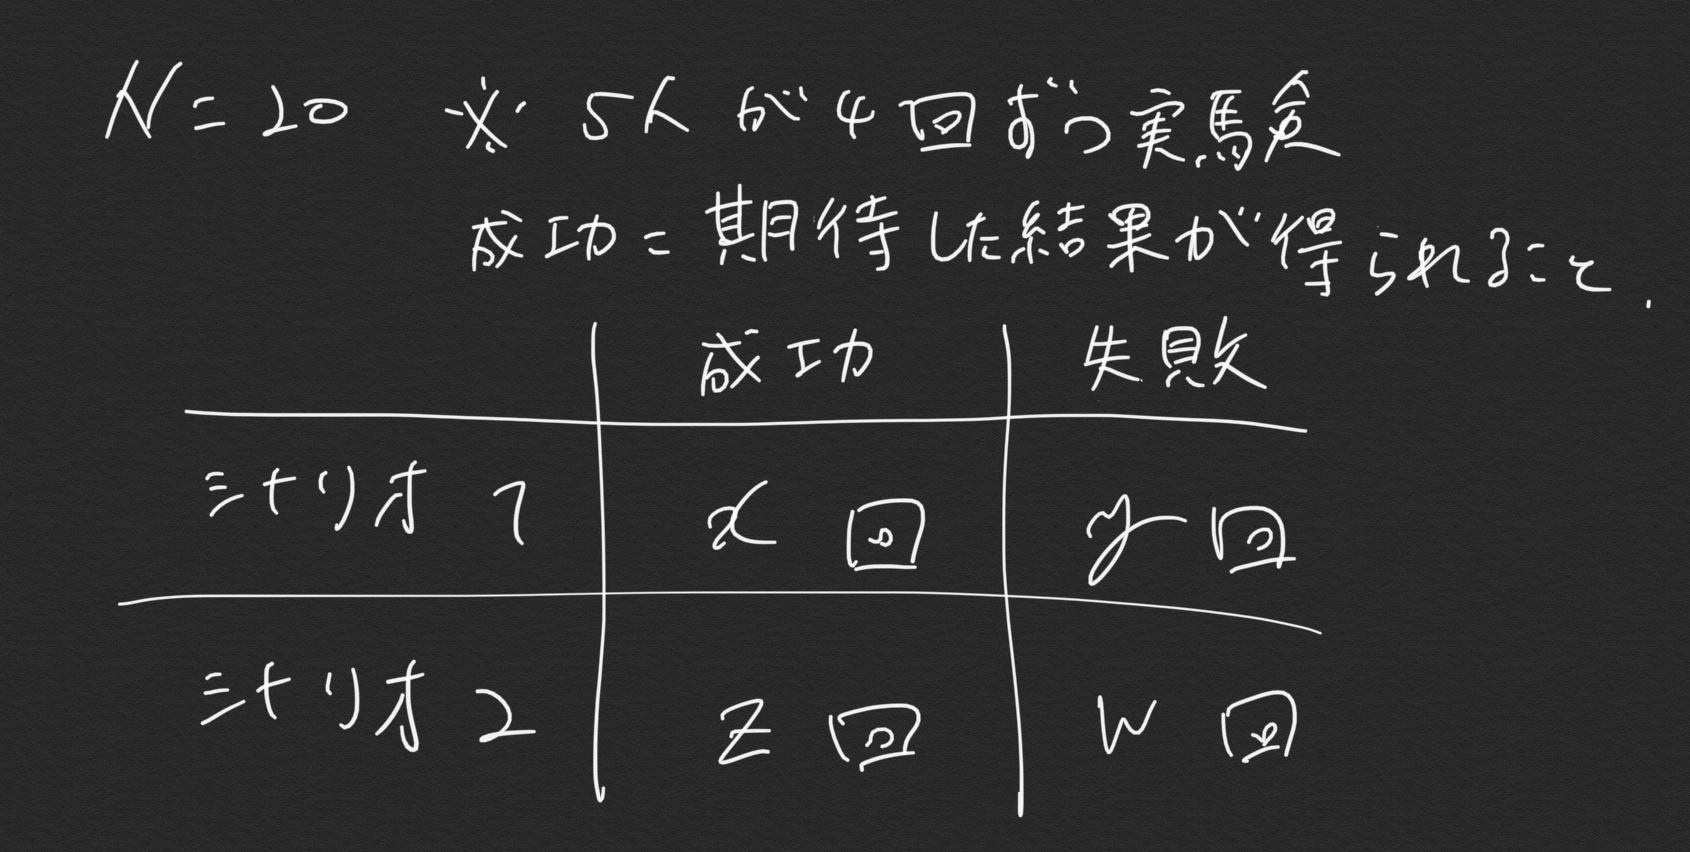 N=20 ※ 5人が4回ずつ実験
成功=期待した結果が得られること.
成功 失敗
シナリオ1 x回 y回
シナリオ2 z回 w回